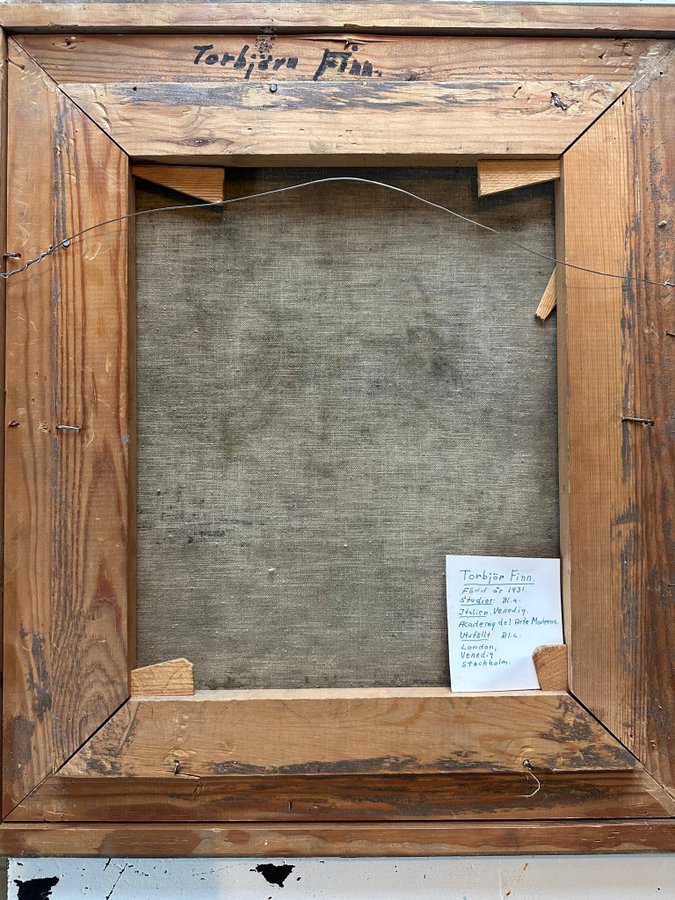 Torbjörn Finn.
Torbjör Finn.
Född år 1931.
Studier Bl.a.
Italien, Venedig.
Academig del Arte Moderna.
Utställt Bl.a.
London,
Venedig
Stockholm.